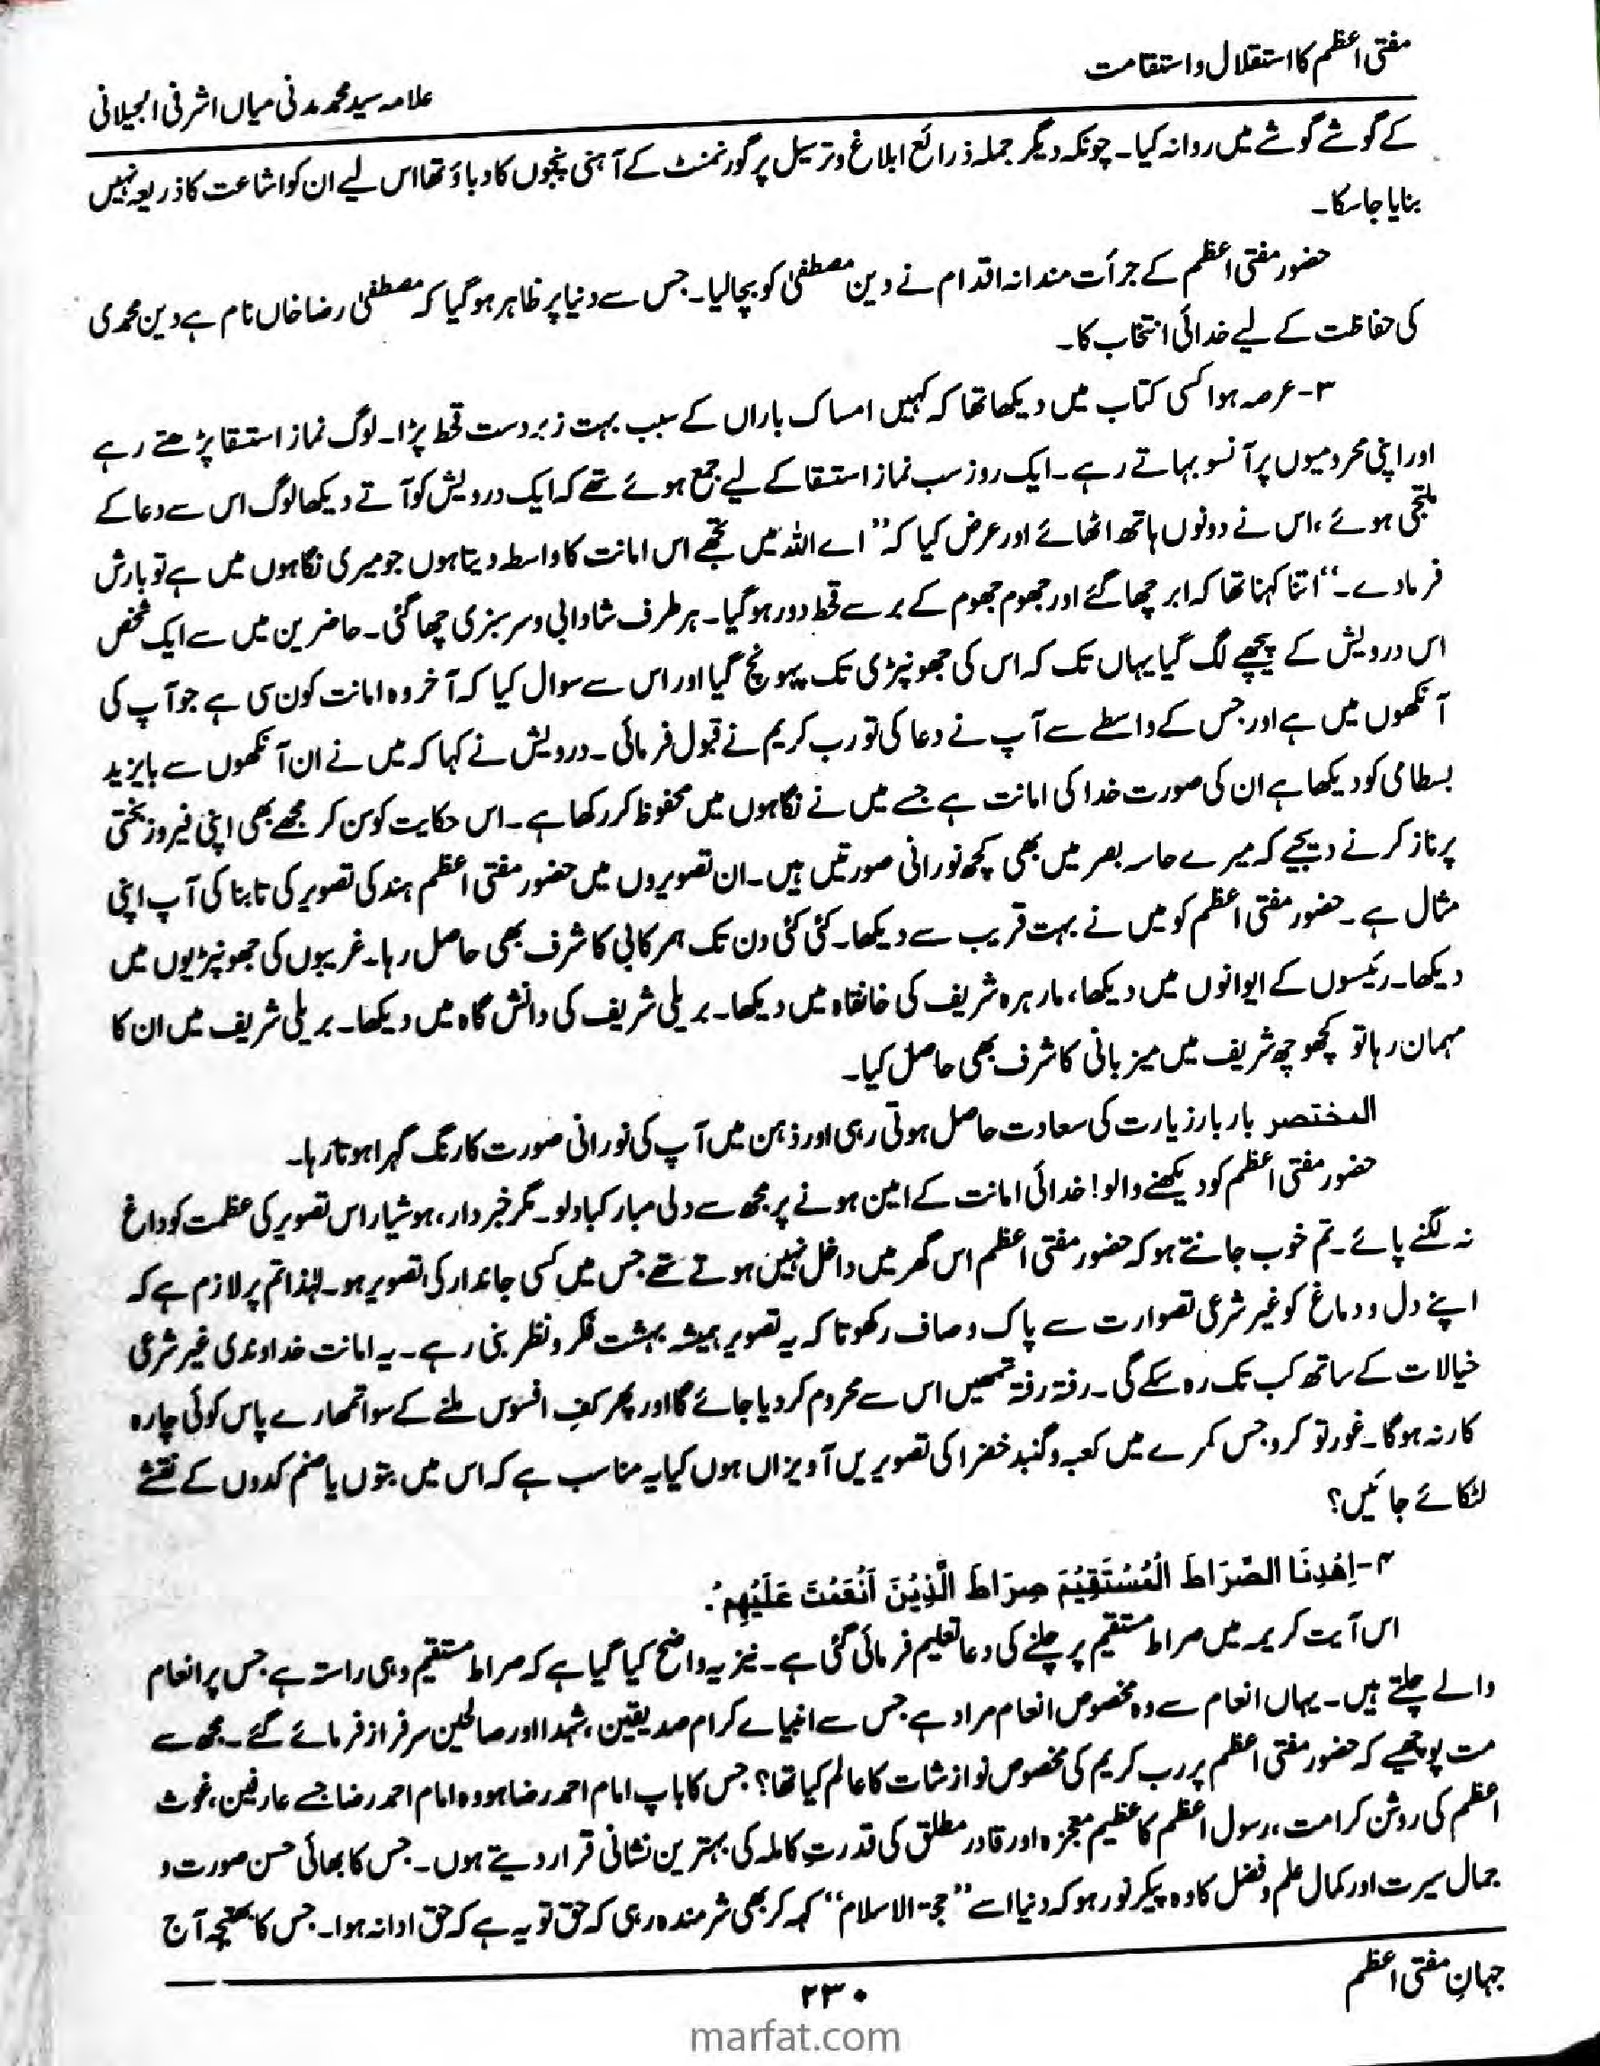 مفتی اعظم کا استقلال و استقامت
علامہ سید محمد مدنی میاں اشرفی الجیلانی
کے گوشے گوشے میں روانہ کیا۔ چونکہ دیگر جملہ ذرائع ابلاغ و ترسیل پر گورنمنٹ کے آہنی پنجوں کا دباؤ تھا اس لیے ان کو اشاعت کا ذریعہ نہیں
بنایا جا سکا۔
حضور مفتی اعظم کے جرأت مندانہ اقدام نے دین مصطفیٰ کو بچا لیا۔ جس سے دنیا پر ظاہر ہو گیا کہ مصطفیٰ رضا خاں نام ہے دین محمدی
کی حفاظت کے لیے خدائی انتخاب کا۔
۳- عرصہ ہوا کسی کتاب میں دیکھا تھا کہ کہیں امساک باراں کے سبب بہت زبردست قحط پڑا۔ لوگ نماز استسقا پڑھتے رہے
اور اپنی محرومیوں پر آنسو بہاتے رہے۔ ایک روز سب نماز استسقا کے لیے جمع ہوئے تھے کہ ایک درویش کو آتے دیکھا لوگ اس سے دعا کے
ملتجی ہوئے، اس نے دونوں ہاتھ اٹھائے اور عرض کیا کہ ”اے اللہ میں تجھے اس امانت کا واسطہ دیتا ہوں جو میری نگاہوں میں ہے تو بارش
فرما دے۔“ اتنا کہنا تھا کہ ابر چھا گئے اور جھوم جھوم کے برسے قحط دور ہو گیا۔ ہر طرف شادابی و سرسبزی چھا گئی۔ حاضرین میں سے ایک شخص
اس درویش کے پیچھے لگ گیا یہاں تک کہ اس کی جھونپڑی تک پہونچ گیا اور اس سے سوال کیا کہ آخر وہ امانت کون سی ہے جو آپ کی
آنکھوں میں ہے اور جس کے واسطے سے آپ نے دعا کی تو رب کریم نے قبول فرمائی۔ درویش نے کہا کہ میں نے ان آنکھوں سے بایزید
بسطامی کو دیکھا ہے ان کی صورت خدا کی امانت ہے جسے میں نے نگاہوں میں محفوظ کر رکھا ہے۔ اس حکایت کو سن کر مجھے بھی اپنی فیروز بختی
پر ناز کرنے دیجیے کہ میرے حاسہ بصر میں بھی کچھ نورانی صورتیں ہیں۔ ان تصویروں میں حضور مفتی اعظم ہند کی تصویر کی تابناکی آپ اپنی
مثال ہے۔ حضور مفتی اعظم کو میں نے بہت قریب سے دیکھا۔ کئی کئی دن تک ہمرکابی کا شرف بھی حاصل رہا۔ غریبوں کی جھونپڑیوں میں
دیکھا۔ رئیسوں کے ایوانوں میں دیکھا، مارہرہ شریف کی خانقاہ میں دیکھا۔ بریلی شریف کی دانش گاہ میں دیکھا۔ بریلی شریف میں ان کا
مہمان رہا تو کچھوچھہ شریف میں میزبانی کا شرف بھی حاصل کیا۔
المختصر بار بار زیارت کی سعادت حاصل ہوتی رہی اور ذہن میں آپ کی نورانی صورت کا رنگ گہرا ہوتا رہا۔
حضور مفتی اعظم کو دیکھنے والو! خدائی امانت کے امین ہونے پر مجھ سے دلی مبارکباد لو۔ مگر خبردار، ہوشیار اس تصویر کی عظمت کو داغ
نہ لگنے پائے۔ تم خوب جانتے ہو کہ حضور مفتی اعظم اس گھر میں داخل نہیں ہوتے تھے جس میں کسی جاندار کی تصویر ہو۔ لہٰذا تم پر لازم ہے کہ
اپنے دل و دماغ کو غیر شرعی تصوارت سے پاک و صاف رکھو تاکہ یہ تصویر ہمیشہ بہشت فکر و نظر بنی رہے۔ یہ امانت خداوندی غیر شرعی
خیالات کے ساتھ کب تک رہ سکے گی۔ رفتہ رفتہ تمھیں اس سے محروم کر دیا جائے گا اور پھر کفِ افسوس ملنے کے سوا تمھارے پاس کوئی چارہ
کار نہ ہوگا۔ غور تو کرو جس کمرے میں کعبہ و گنبد خضرا کی تصویریں آویزاں ہوں کیا یہ مناسب ہے کہ اس میں بتوں یا صنم کدوں کے نقشے
لٹکائے جائیں؟
۴- اِهْدِنَا الصِّرَاطَ الْمُسْتَقِيْمَ صِرَاطَ الَّذِيْنَ اَنْعَمْتَ عَلَيْهِمْ.
اس آیت کریمہ میں صراط مستقیم پر چلنے کی دعا تعلیم فرمائی گئی ہے۔ نیز یہ واضح کیا گیا ہے کہ صراط مستقیم وہی راستہ ہے جس پر انعام
والے چلتے ہیں۔ یہاں انعام سے وہ مخصوص انعام مراد ہے جس سے انبیاے کرام صدیقین، شہدا اور صالحین سرفراز فرمائے گئے۔ مجھ سے
مت پوچھیے کہ حضور مفتی اعظم پر رب کریم کی مخصوص نوازشات کا عالم کیا تھا؟ جس کا باپ امام احمد رضا ہو وہ امام احمد رضا جسے عارفین، غوث
اعظم کی روشن کرامت، رسول اعظم کا عظیم معجزہ اور قادر مطلق کی قدرتِ کاملہ کی بہترین نشانی قرار دیتے ہوں۔ جس کا بھائی حسن صورت و
جمال سیرت اور کمال علم و فضل کا وہ پیکر نور ہو کہ دنیا اسے ”حجۃ الاسلام“ کہہ کر بھی شرمندہ رہی کہ حق تو یہ ہے کہ حق ادا نہ ہوا۔ جس کا بھتیجہ آج
جہانِ مفتی اعظم
۲۳۰
marfat.com